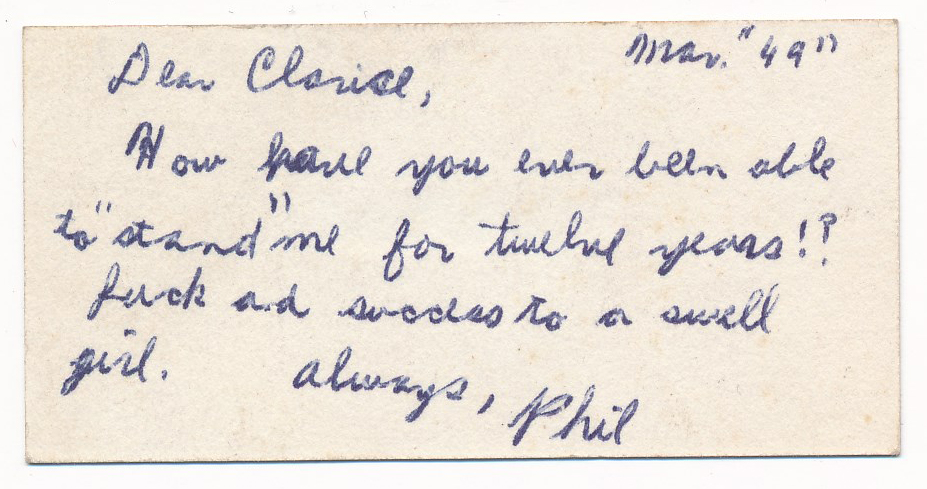 Mar. "49"
Dear Clarice,
How have you ever been able
to "stand" me for twelve years!?
Luck ad success to a swell
girl. Always, Phil